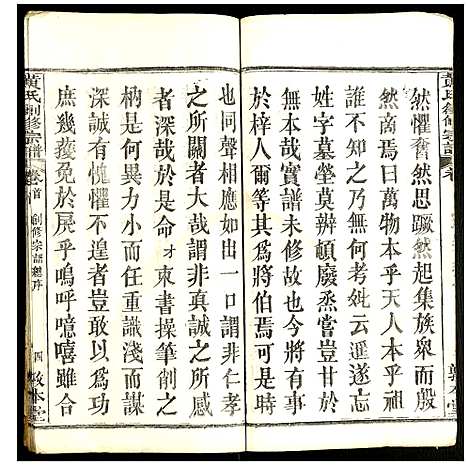 然懼奮然思蹶然起集族衆而殷
然商焉曰萬物本乎天人本乎祖
誰不知之乃父没考妣云遥遂忘
姓字墓塋莫辨頓廢烝嘗豈甘於
無本哉實譜未修故也其伯曁先
於梓二人爾等其傳諸族無不曰
也同聲相應如出一口謂非仁孝
之所關者大哉謂非真誠之所感
者深哉於是命才束書操筆削之
柄是異力小而任重識淺而謀
深誠有愧懼不遑者豈敢以為功
庶幾獲免於戾乎嗚呼噫嘻雖合
黃氏創修宗譜 卷首 創修宗譜總序 四 敦本堂